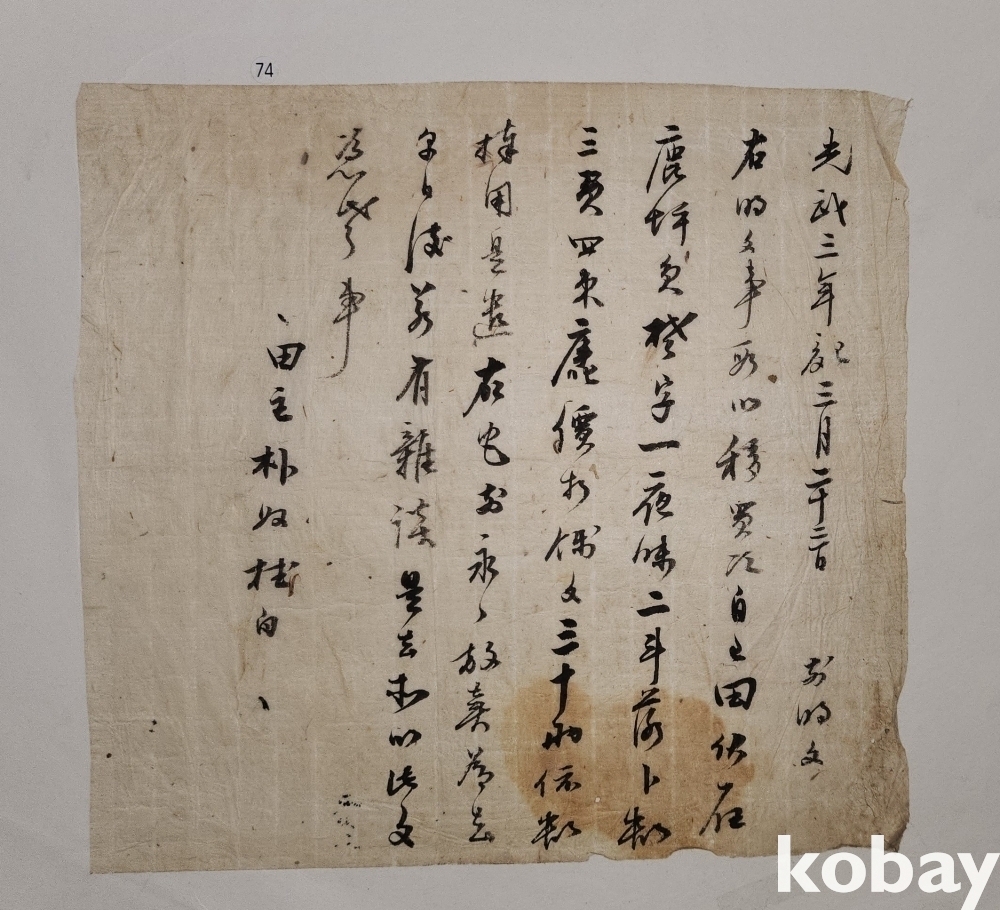 74
光武三年記三月二十三日 前明文
右明文事段以移買次自己田伏在
鹿坪員楚字一夜味二斗落卜數
三負四束廌價折錢文三十兩依數
捧用是遣右宅前永永放賣爲去
乎日後若有雜談是去木以此文
憑考事
田主朴奴桂白
kobay